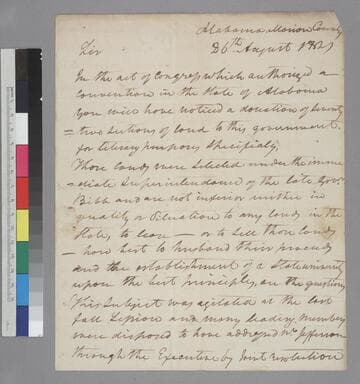 Alabama Marion County
26th August 1821
Sir
In the act of Congress which authorized a
convention in the State of Alabama
you will have noticed a donation of seventy
= two sections of land to this government
for literary purposes specifically,
Those lands were selected under the imme
= diate superintendance of the late Govr.
Bibb and are not inferior neither in
quality or situation to any lands in the
State, to lease — or to sell those lands
— how best to husband their proceeds
and the establishment of a State university
upon the best principles, are the questions
This subject was agitated at the last
fall Session and many leading members
were disposed to have addressed Mr. Jefferson
through the Executive by Joint resolution